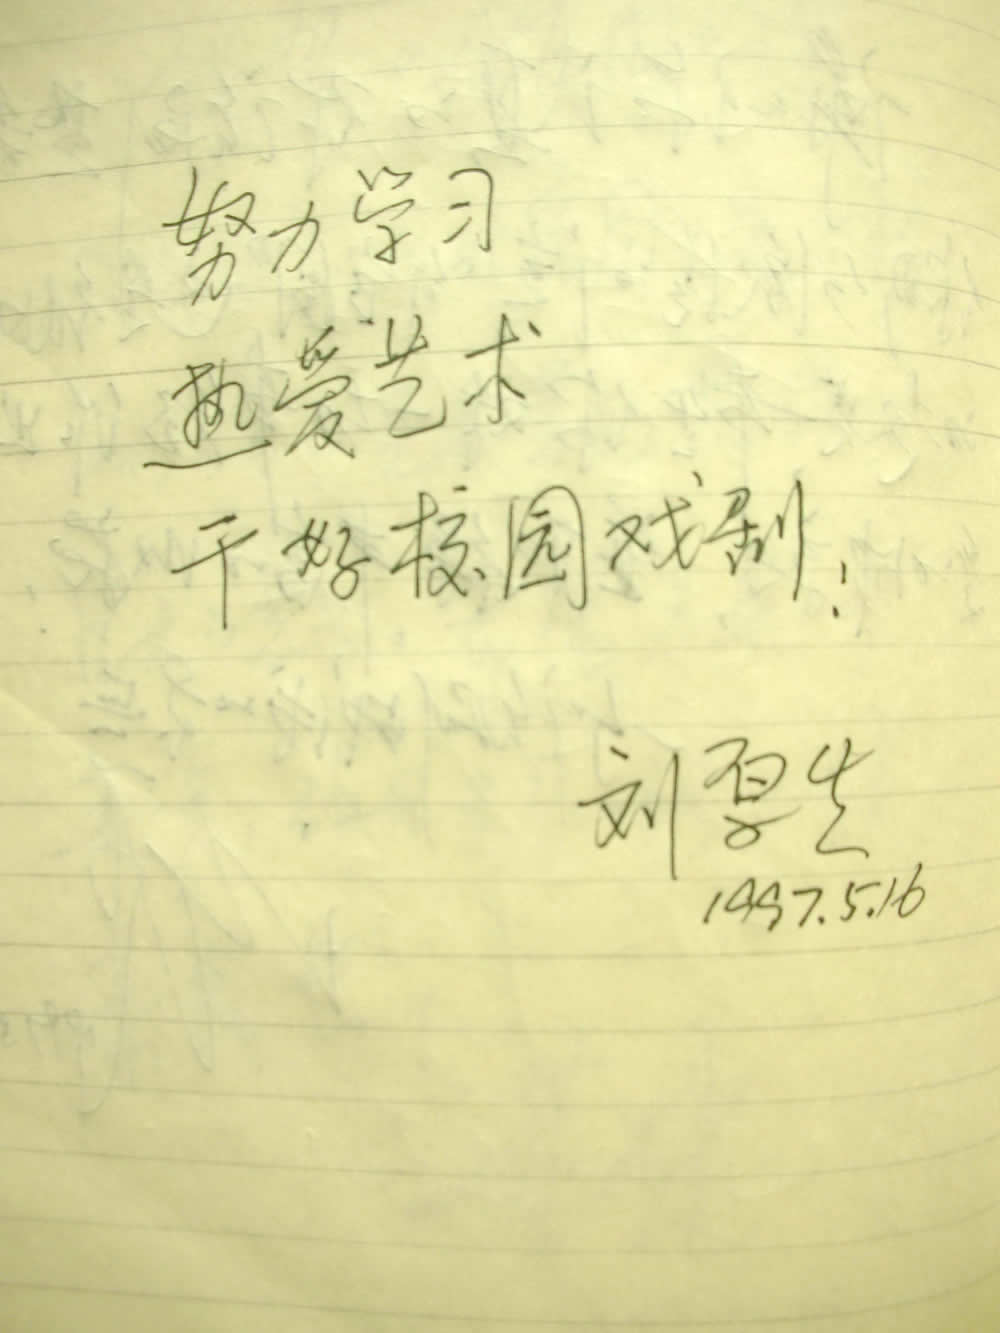 努力学习
热爱艺术
干好校园戏剧!
刘厚生
1997.5.16